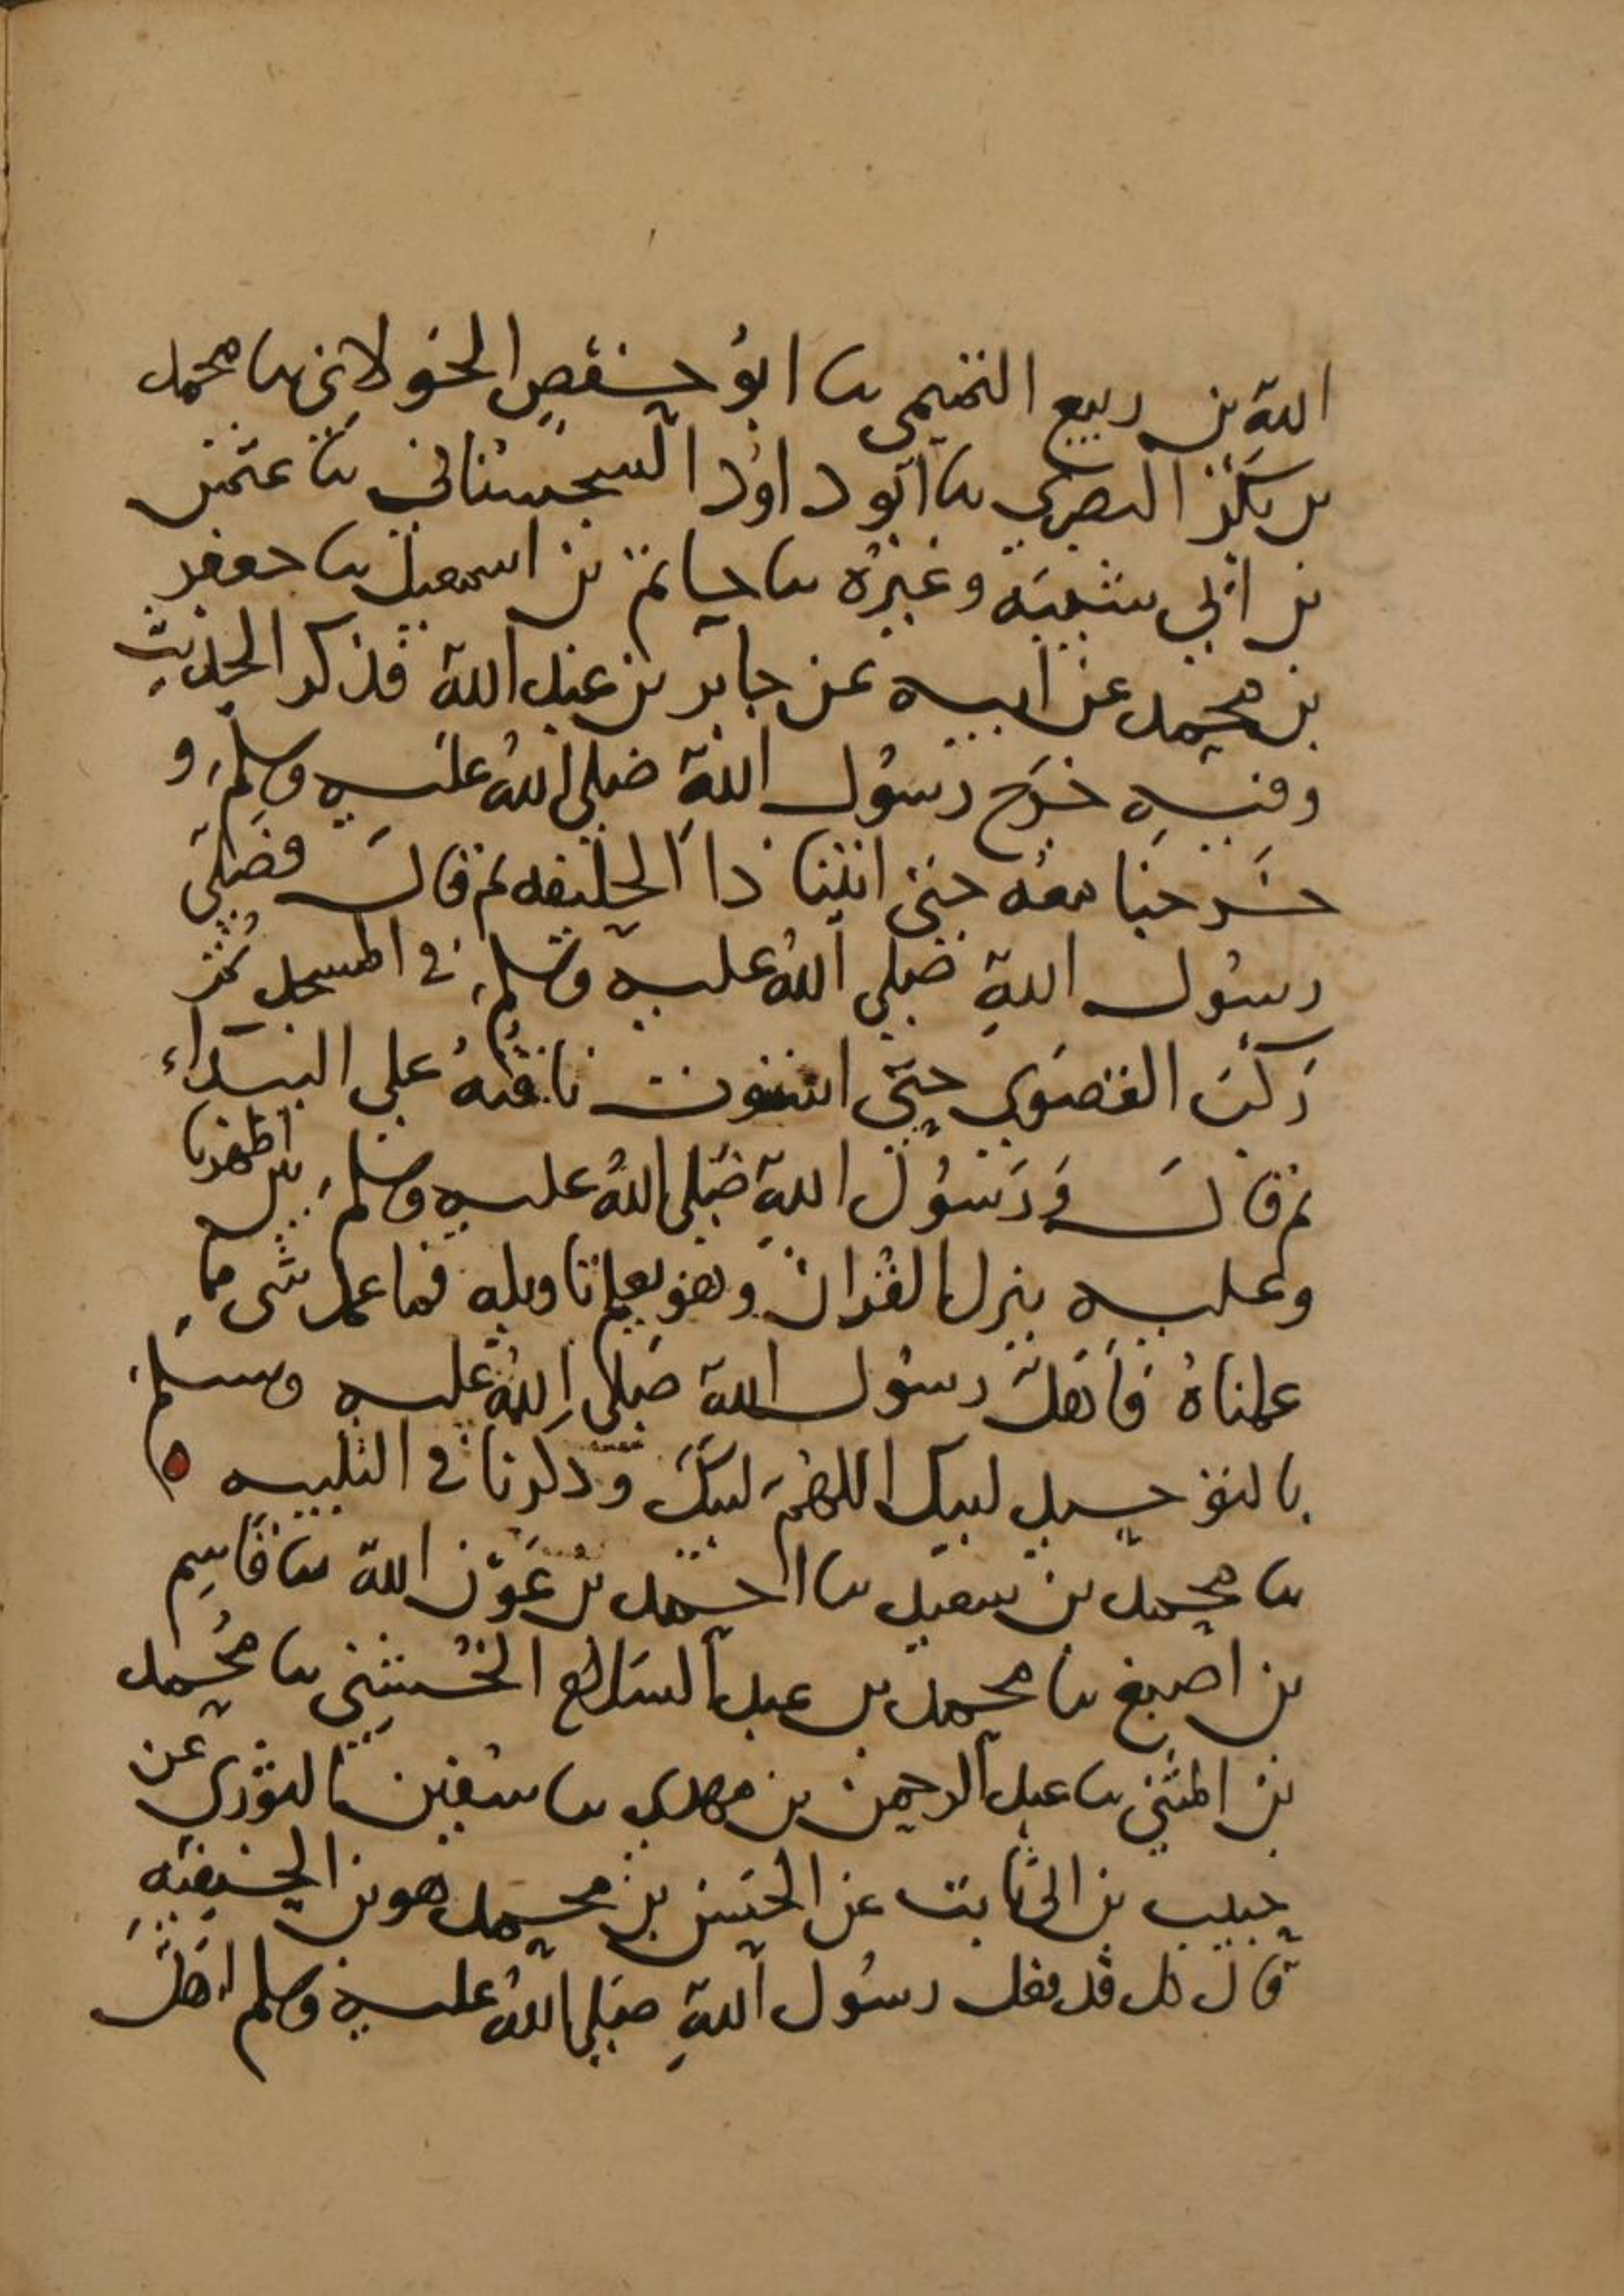 الله بن ربيع التميمي نا ابو حفص الخولاني نا محمد
بن بكر البصري نا ابو داود السجستاني نا عثمن
بن ابي شيبه وغيره نا حاتم بن اسمعيل نا جعفر
بن محمد عن ابيه عن جابر بن عبد الله فذكر الحديث
وفيه خرج رسول الله صلى الله عليه وسلم و
خرجنا معه حتى اتينا ذا الحليفه ثم قال فصلى
رسول الله صلى الله عليه وسلم في المسجد ثم
ركب القصوى حتى استوت ناقته على البيداء
ثم قال ورسول الله صلى الله عليه وسلم بين اظهرنا
وعليه ينزل القران وهو يعلم تاويله فما عمل شي مما
عملناه فاهل رسول الله صلى الله عليه وسلم
بالتوحيد لبيك اللهم لبيك وذكرنا في التلبيه ه
نا محمد بن سعيد نا احمد بن عون الله نا قاسم
بن اصبغ نا محمد بن عبد السلام الخشني نا محمد
بن المثنى نا عبد الرحمن بن مهدي نا سفين الثوري عن
حبيب بن ابي ثابت عن الحسن بن محمد هو بن الحنيفيه
قال كل قد فعل رسول الله صلى الله عليه وسلم اهل